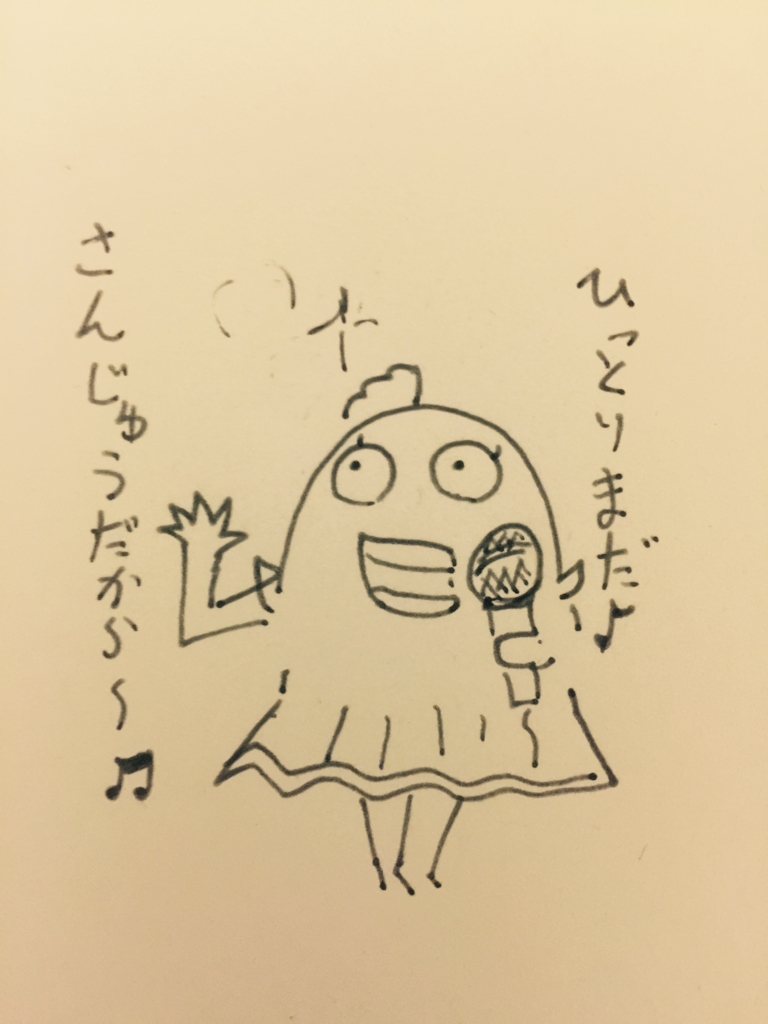 ひっとりまだ♪
さんじゅうだから〜♫